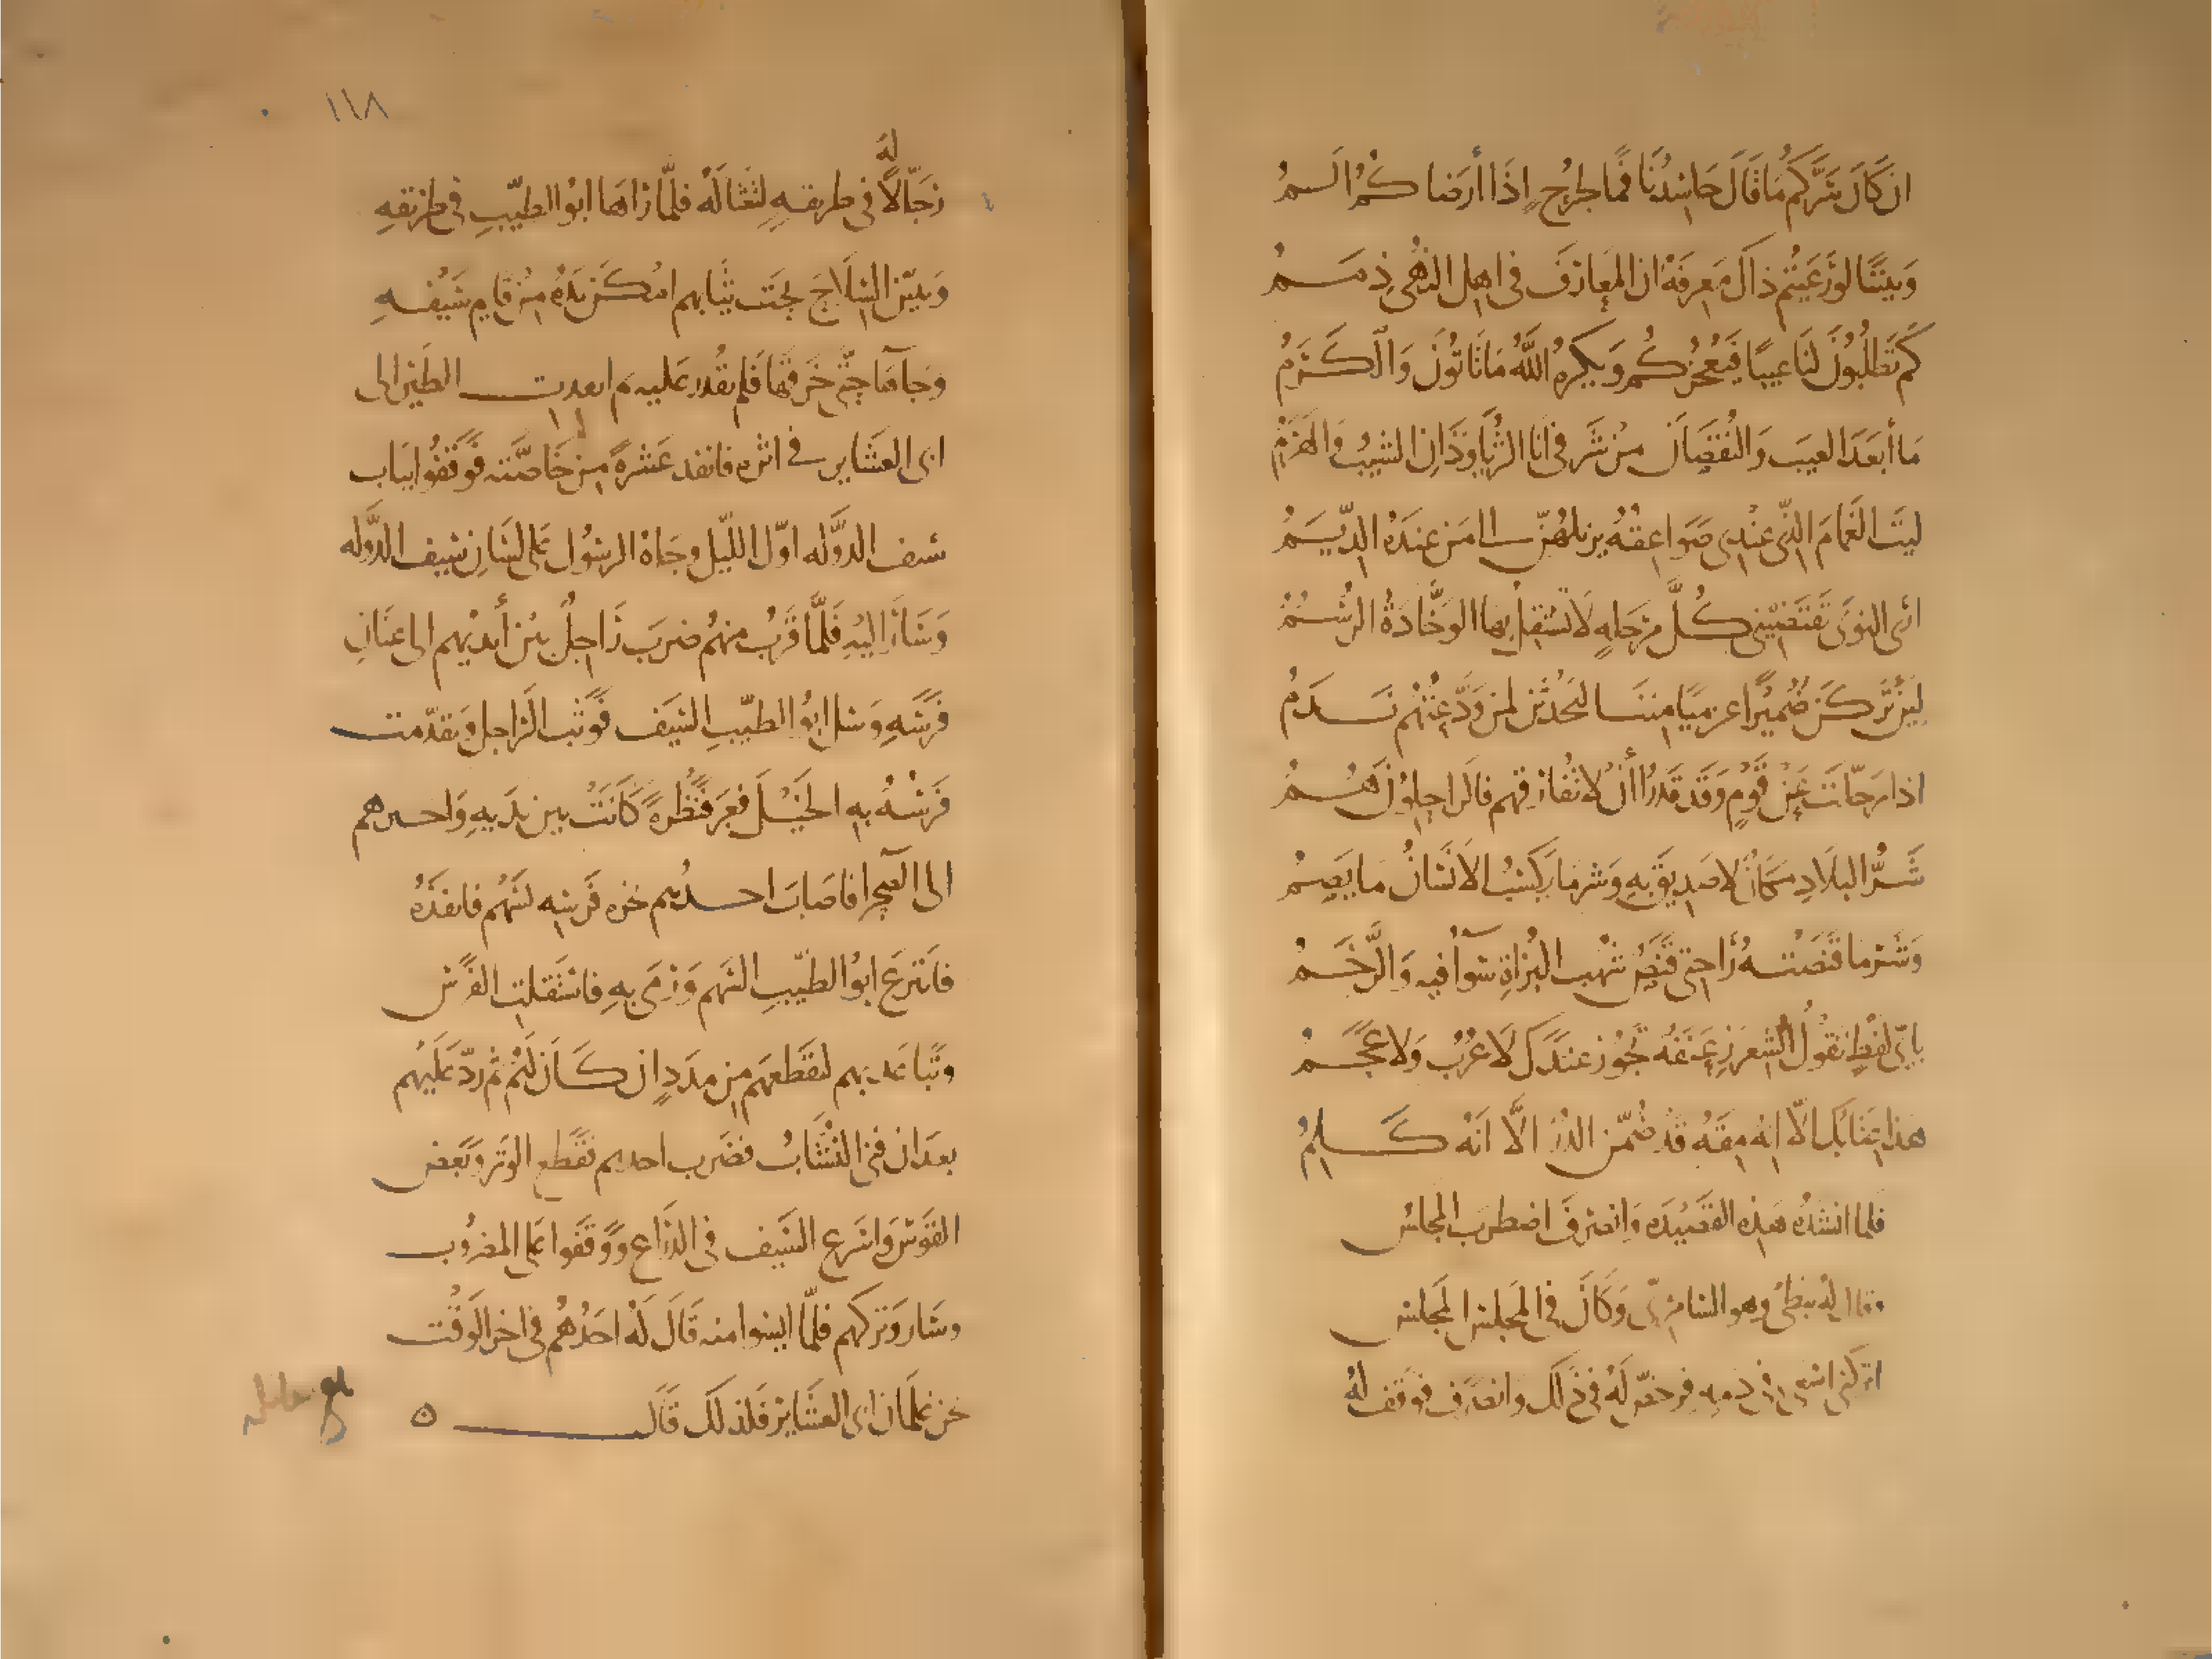 ان كَانَ سَرَّكُم مَا قَالَ حَاسِدُنَا فَما لِجُرْحٍ إِذَا أرضَاكُمُ أَلَمُ
وَبَيْنَنَا لَوْ رَعَيْتُم ذاكَ مَعرِفَةٌ ان المَعارِفَ في اهل النُّهَى ذِمَمُ
كَم تَطْلُبُونَ لَنَا عَيبًا فَيُعْجِزُكُم وَيَكرَهُ اللَّهُ مَا تَاتُونَ وَالْكَرَمُ
مَا أَبعَدَ العَيبَ وَالنُقصَانَ مِنْ شَرَفي انَا الثُّرَيَّا وَذَانِ الشَيبُ وَالهَرَمُ
لَيتَ الغَمَامَ الذَّي عِنْدِى صَوَاعِقُهُ يُزيلُهُنَّ الى مَن عِندَهُ الدِّيَمُ
ارَى النَوَى تَقتَضِيني كُلَّ مَرحَلةٍ لَا تَسْتَقِلُّ بِهَا الوَخَّادَةُ الرُسُمُ
لَئِنْ تَرَكنَ ضُمَيْرًا عن مَيَامِنِنَا لَيَحْدُثَنَّ لِمَن وَدَّعْتُهُمْ نَدَمُ
اذا تَرَحَّلتَ عَنْ قَوْمٍ وَقَد قَدَرُوا أَنْ لا تُفَارِقَهم فالرَّاحِلُونَ هُمُ
شَرُّ البلَادِ مَكَانٌ لا صَدِيقَ بِهِ وَشَر ما يَكسِبُ الانسَانُ ما يَصِمُ
وَشَرُّ ما قَنَصَتْهُ رَاحَتِي قَنَصٌ شُهبُ البُزَاةِ سَوَآءٌ فيهِ وَالرَّخَمُ
بايِّ لَفْظٍ تَقُولُ الشِعرَ زِعنِفَةٌ تَجُوزُ عِندَكَ لَا عُرْبٌ وَلا عَجَمُ
هذا عِتَابُكَ الّا انهُ مِقَةٌ قَد ضُمِّنَ الدُرَّ الَّا انّهُ كَلِمُ
فلما انشدَهُ هَذِه القَصِيدَه وَانصرَفَ اضطربَ المجلسُ
وقال لهُ نبطيٌّ وهو السامَرِّى وَكَانَ في المَجلس المجلس
اتركني اسعى في دمهِ فرخّصَ لَهُ في ذلكَ وانصَرَف فوَقَف لَهُ
١١٨
رَجَّالًا لَهُ في طريقهِ لتغتَالَهُ فلمَّا رَاهَا ابُو الطيّبِ في طَريقهِ
وَتَبيَّن السِلَاحَ تحتَ ثيَابهم امْكنَ يَدَهُ مِنْ قايم سَيفهِ
وَجَآهَا حَتّى خَرَقهَا فلم تَقْدر عليه م الى
ابى العَشَاير في اثرهِ فانفذ عَشرةً مِن خَاصَّتهِ فوَقَفُوا ببَاب
سَيف الدَّوله اوّل اللّيل وجَاهُ الرسُول على لسَان سَيف الدَّوله
وَسَارَ اليهِ فَلَمَّا قَرُبَ منهُم ضَربَ رَاجلٌ بَيْن أَيديهم الى عنَانِ
فَرَسهِ وَسَل ابُو الطيّبِ السَيَف فَوثَب الرَاجل وَتقدّمت
فَرَسُهُ بهِ الخَيْلَ فعَبَر قَنْطَرةً كَانَتْ بين يَدَيهِ وَاجترهم
الى الصَحرا فاصَابَ احدُهُم نحرَ فَرَسهِ بسَهم فانفذَهُ
فَانتزعَ ابُو الطَّيّبِ السَهم وَرَمَى بهِ فاسْتَقلت الفَرَس
وَتبَاعَد بهم ليَقَطعهم مِن مدَدٍ ان كَانَ لَهُمْ ثم رَدَّ عَلَيهم
بعدَ ان فنى النُشَّابُ فضَرب احدهم فقَطع الوَتر وَبَعض
القَوْس وَاسَرع السَيف في الذرَاع ووَقَفوا على المضرُوب
وسَار وَتركهم فلمَّا ايسوا منه قَالَ لَهُ احَدُهُم في اخر الوَقْت
نحن غلمَان ابى العشَاير فلذلكَ قَالَ ه